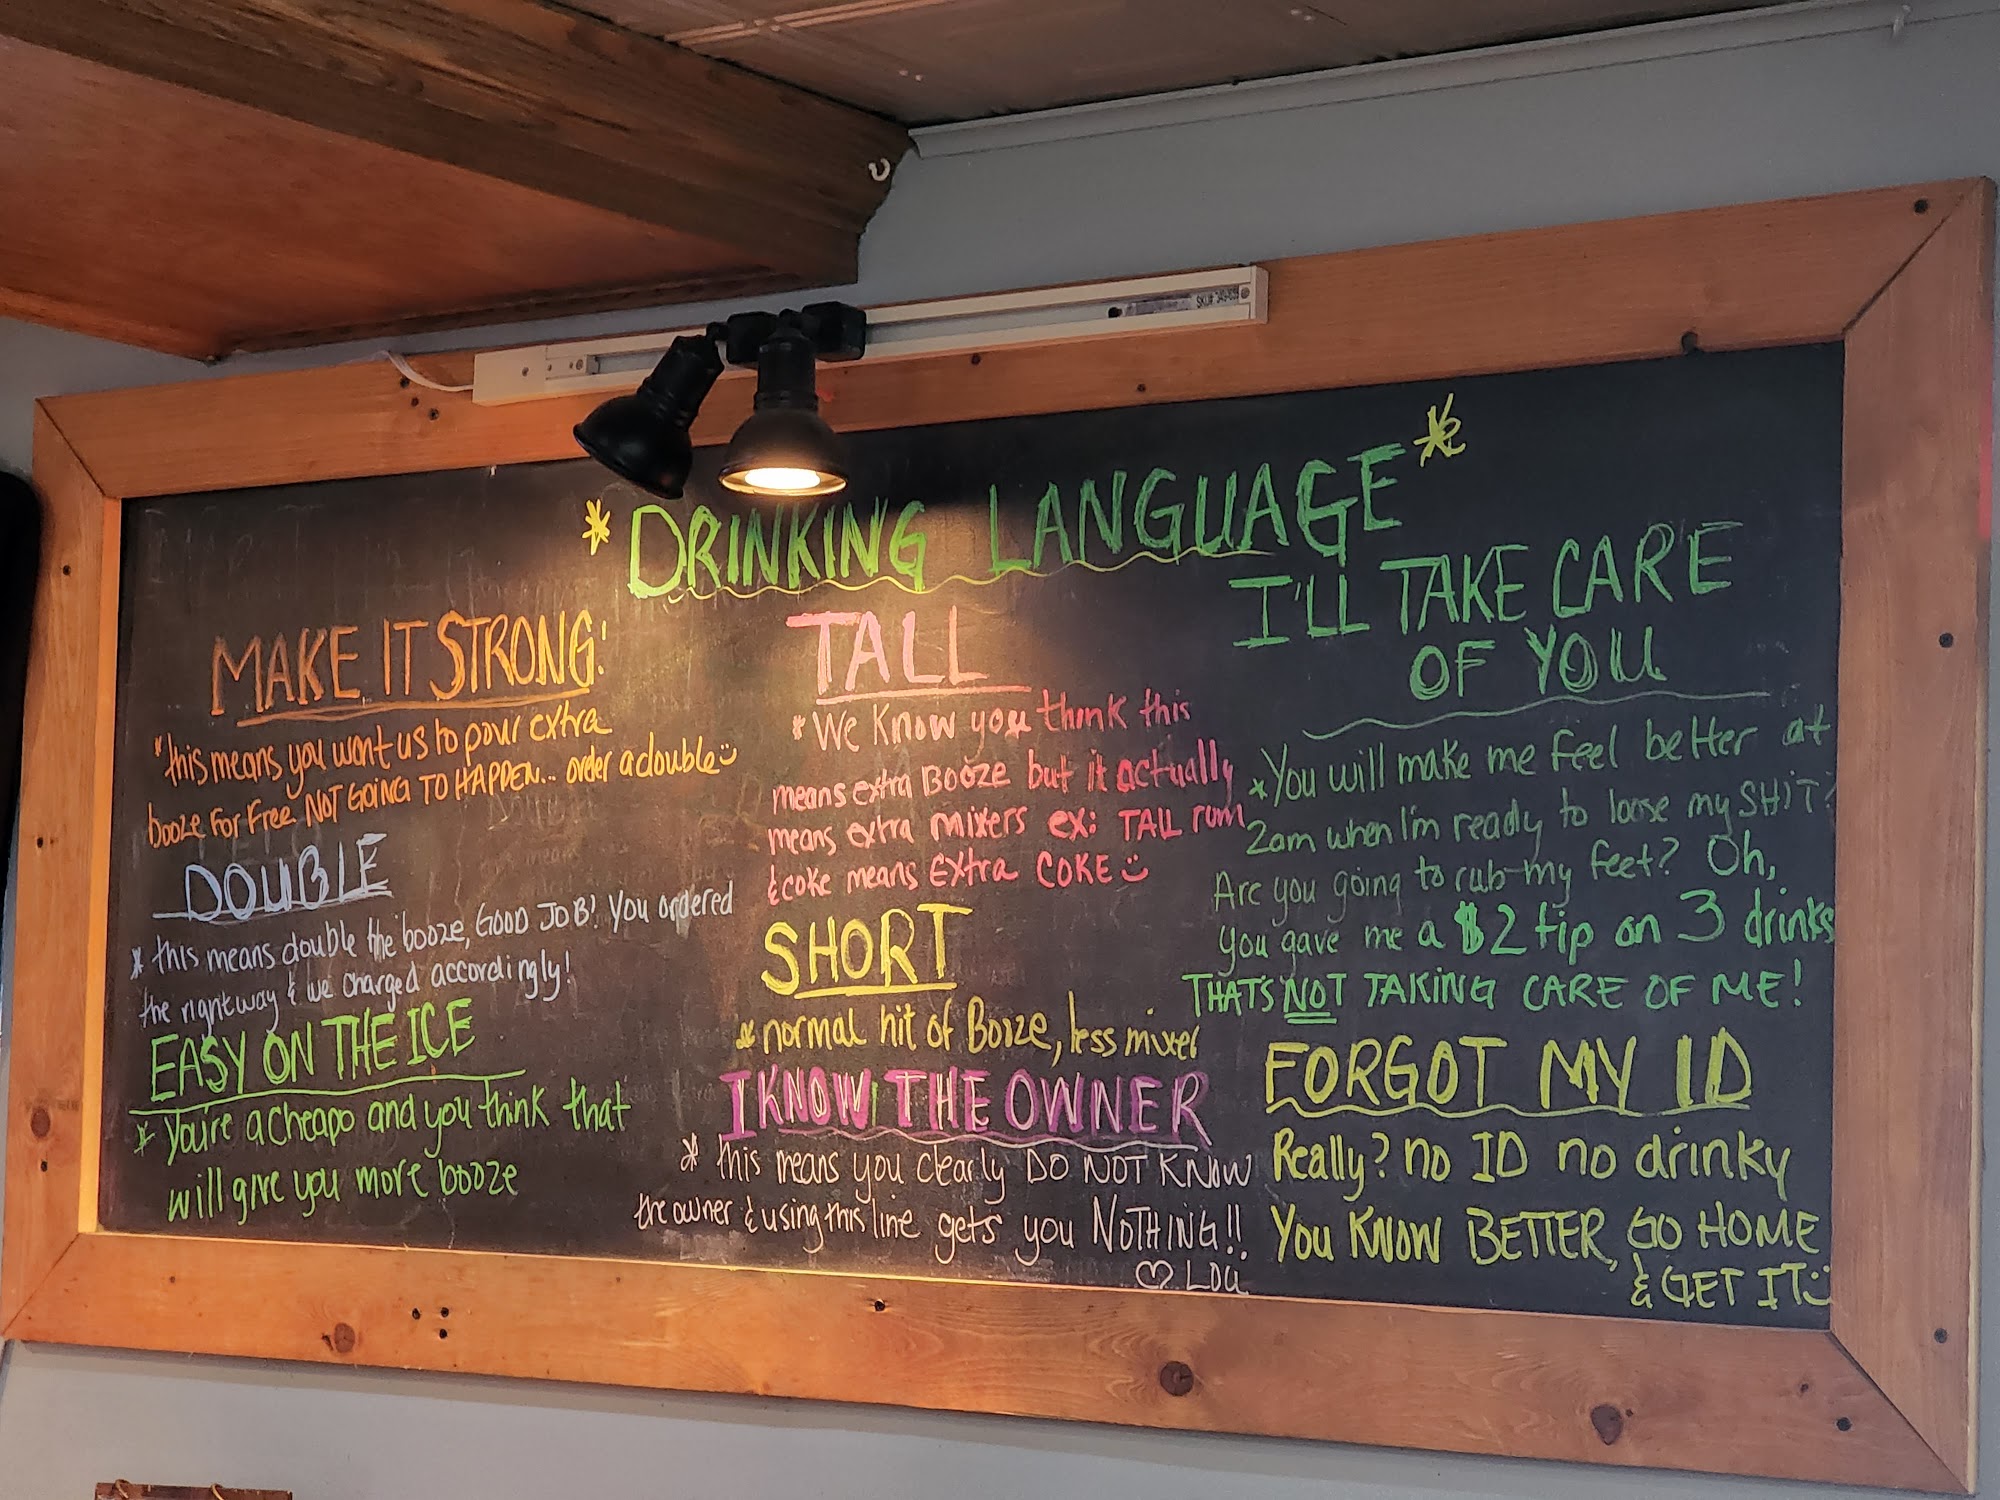 SKU#: 349-695
*DRINKING LANGUAGE*
MAKE IT STRONG:
*this means you want us to pour extra
booze For Free NOT GOING TO HAPPEN... order a double
DOUBLE
* this means double the booze, GOOD JOB! You ordered
the right way & we charged accordingly!
EASY ON THE ICE
* You're a cheapo and you think that
will give you more booze
TALL
*We Know you think this
means extra BOOZE but it actually
means extra mixers ex: TALL rum
& coke means Extra COKE
SHORT
*normal hit of Booze, less mixer
I KNOW THE OWNER
* this means you clearly DO NOT KNOW
the owner & using this line gets you NOTHING!!
♡ LOU
I'LL TAKE CARE
OF YOU
*You will make me feel better at
2am when I'm ready to loose my SHIT?
Are you going to rub my feet? Oh,
You gave me a $2 tip on 3 drinks
THATS NOT TAKING CARE OF ME!
FORGOT MY ID
Really? no ID no drinky
You KNOW BETTER, GO HOME
& GET IT